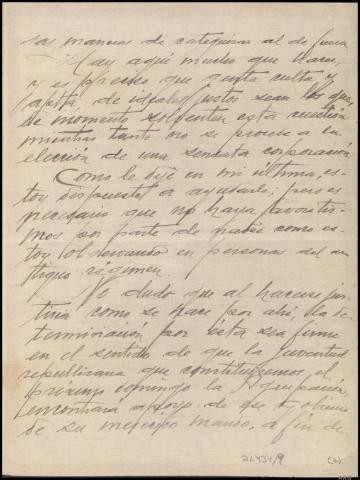 sas maneras de catequisar al de fuera
Hay aquí mucho que hacer,
y es preciso que gente culta, y
apta, de ideales justos sean los que
de momento solventen esta cuestión
mientras tanto no se proceda a la
elección de una sensata corporación.
Como le dije en mi última, es-
toy dispuesto a ayudarle; pero es
necesario que no haya favoritis-
mos por parte de nadie como es-
toy observando en personas del an-
tiguo régimen.
No dudo que al hacerse jus-
ticia como se hace por ahí, la de-
terminación por esta sea firme
en el sentido de que la juventud
republicana que constituiremos el
próximo domingo la Agrupación,
encontrará apoyo de de su mando, a fin de
21434/9 (2)